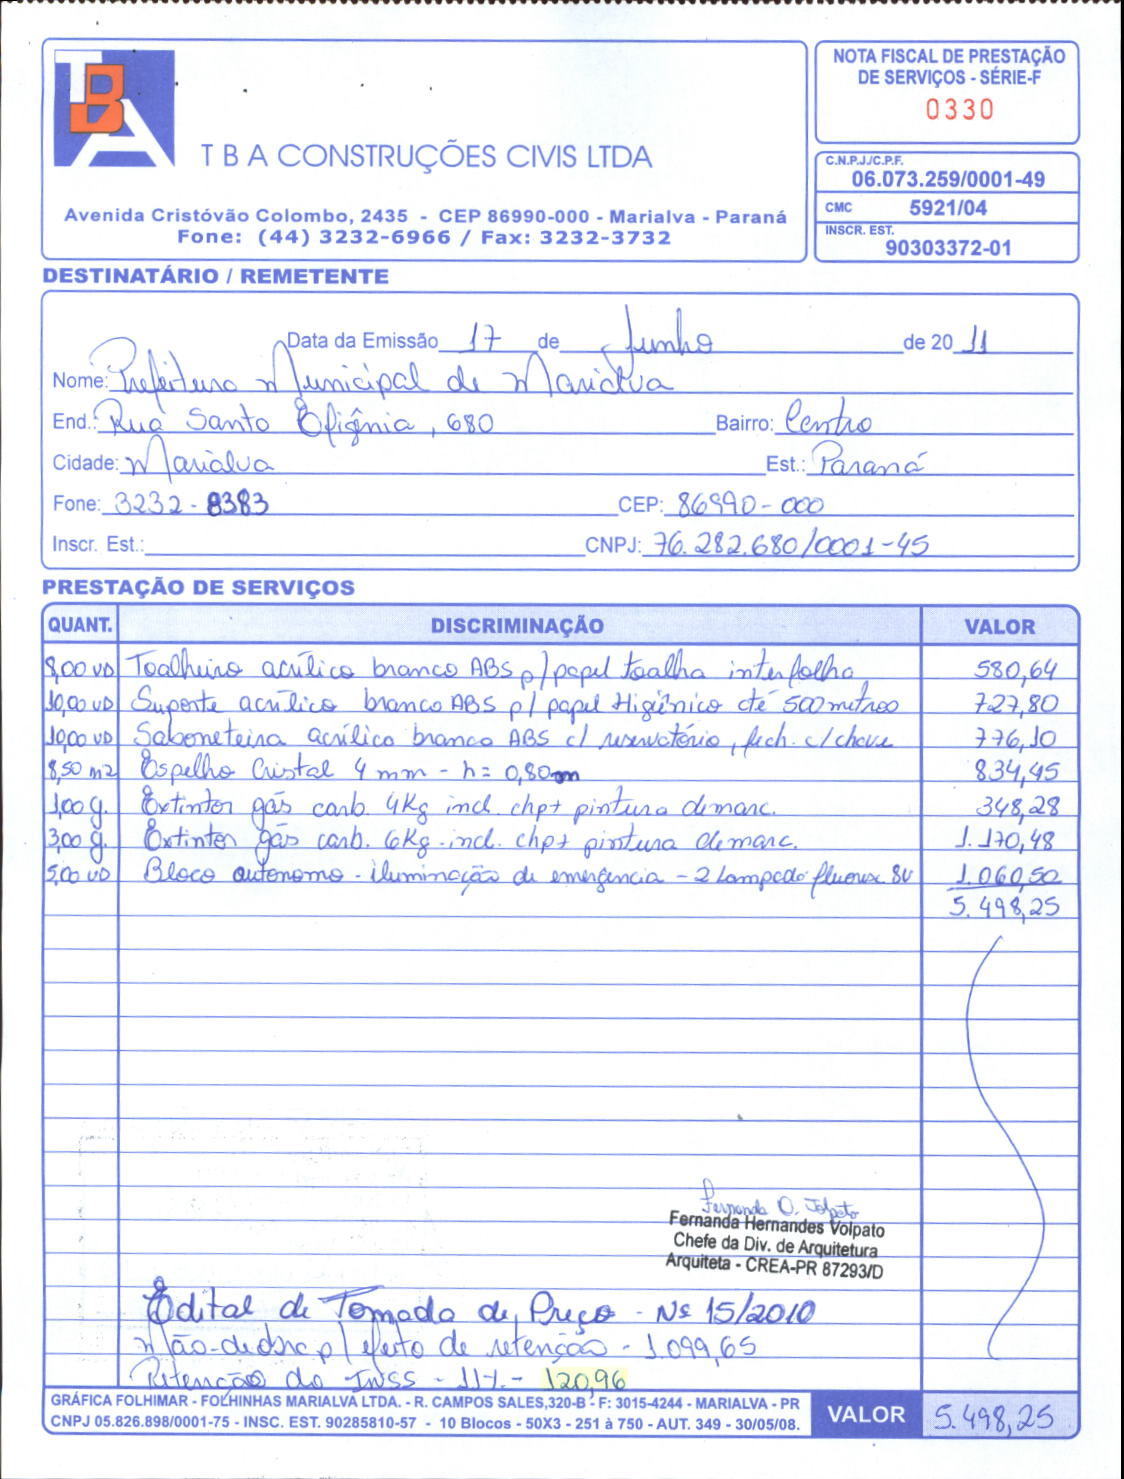 TBA
T B A CONSTRUÇÕES CIVIS LTDA
Avenida Cristóvão Colombo, 2435 - CEP 86990-000 - Marialva - Paraná
Fone: (44) 3232-6966 / Fax: 3232-3732
NOTA FISCAL DE PRESTAÇÃO
DE SERVIÇOS - SÉRIE-F
0330
C.N.P.J./C.P.F.
06.073.259/0001-49
CMC 5921/04
INSCR. EST.
90303372-01
DESTINATÁRIO / REMETENTE
Data da Emissão 17 de Junho de 2011
Nome: Prefeitura Municipal de Marialva
End.: Rua Santa Efigênia, 680 Bairro: Centro
Cidade: Marialva Est.: Paraná
Fone: 3232-8383 CEP: 86990-000
Inscr. Est.: CNPJ: 76.282.680/0001-45
PRESTAÇÃO DE SERVIÇOS
QUANT. DISCRIMINAÇÃO VALOR
8,00 UD Toalheiro acrílico branco ABS p/ papel toalha interfolha 580,64
10,00 UD Suporte acrílico branco ABS p/ papel Higiênico até 500 metros 727,80
10,00 UD Saboneteira acrílico branco ABS c/ reservatório, fech. c/chave 776,10
8,50 m2 Espelho Cristal 4 mm - h = 0,80m 834,45
1,00 g. Extintor gás carb. 4Kg incl. chp+ pintura demarc. 348,28
3,00 g. Extintor gás carb. 6Kg incl. chp+ pintura demarc. 1.170,48
5,00 UD Bloco autonomo - iluminação de emergencia - 2 Lampada fluoresc 8W 1.060,50
5.498,25
Fernanda O. Volpato
Fernanda Hernandes Volpato
Chefe da Div. de Arquitetura
Arquiteta - CREA-PR 87293/D
Edital de Tomada de Preço - Nº 15/2010
Mão-de-obra p/ efeito de retenção - 1.099,65
Retenção do INSS - 11% - 120,96
GRÁFICA FOLHIMAR - FOLHINHAS MARIALVA LTDA. - R. CAMPOS SALES,320-B - F: 3015-4244 - MARIALVA - PR
CNPJ 05.826.898/0001-75 - INSC. EST. 90285810-57 - 10 Blocos - 50X3 - 251 à 750 - AUT. 349 - 30/05/08.
VALOR 5.498,25